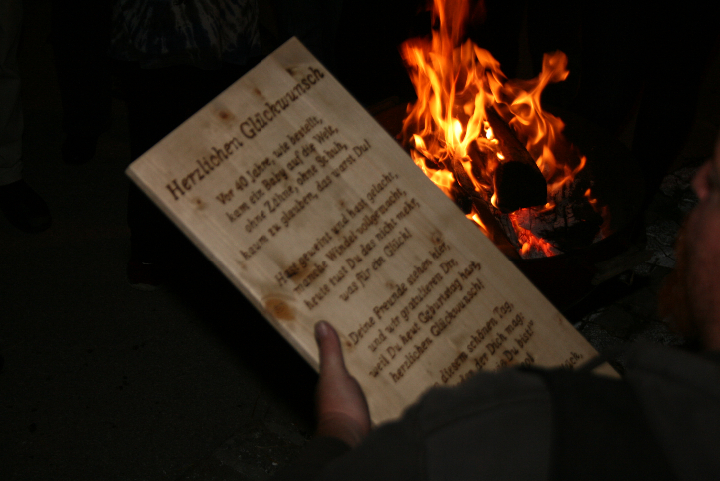 Herzlichen Glückwunsch
Vor 40 Jahre, wie bestellt,
kam ein Baby auf die Welt,
ohne Zähne, ohne Schuh,
kaum zu glauben, das warst Du!
Hast geweint und hast gelacht,
manche Windel vollgemacht,
heute tust Du das nicht mehr,
was für ein Glück!
Deine Freunde stehen hier
und wir gratulieren Dir,
weil Du heut Geburtstag hast,
herzlichen Glückwunsch!
diesem schönen Tag,
der Dich mag:
Du bist!"